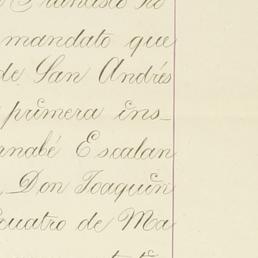 Francisco Ro
mandato que
de San Andrés
primera ins_
rnabé Escalan
Don Joaquin
cuatro de Ma